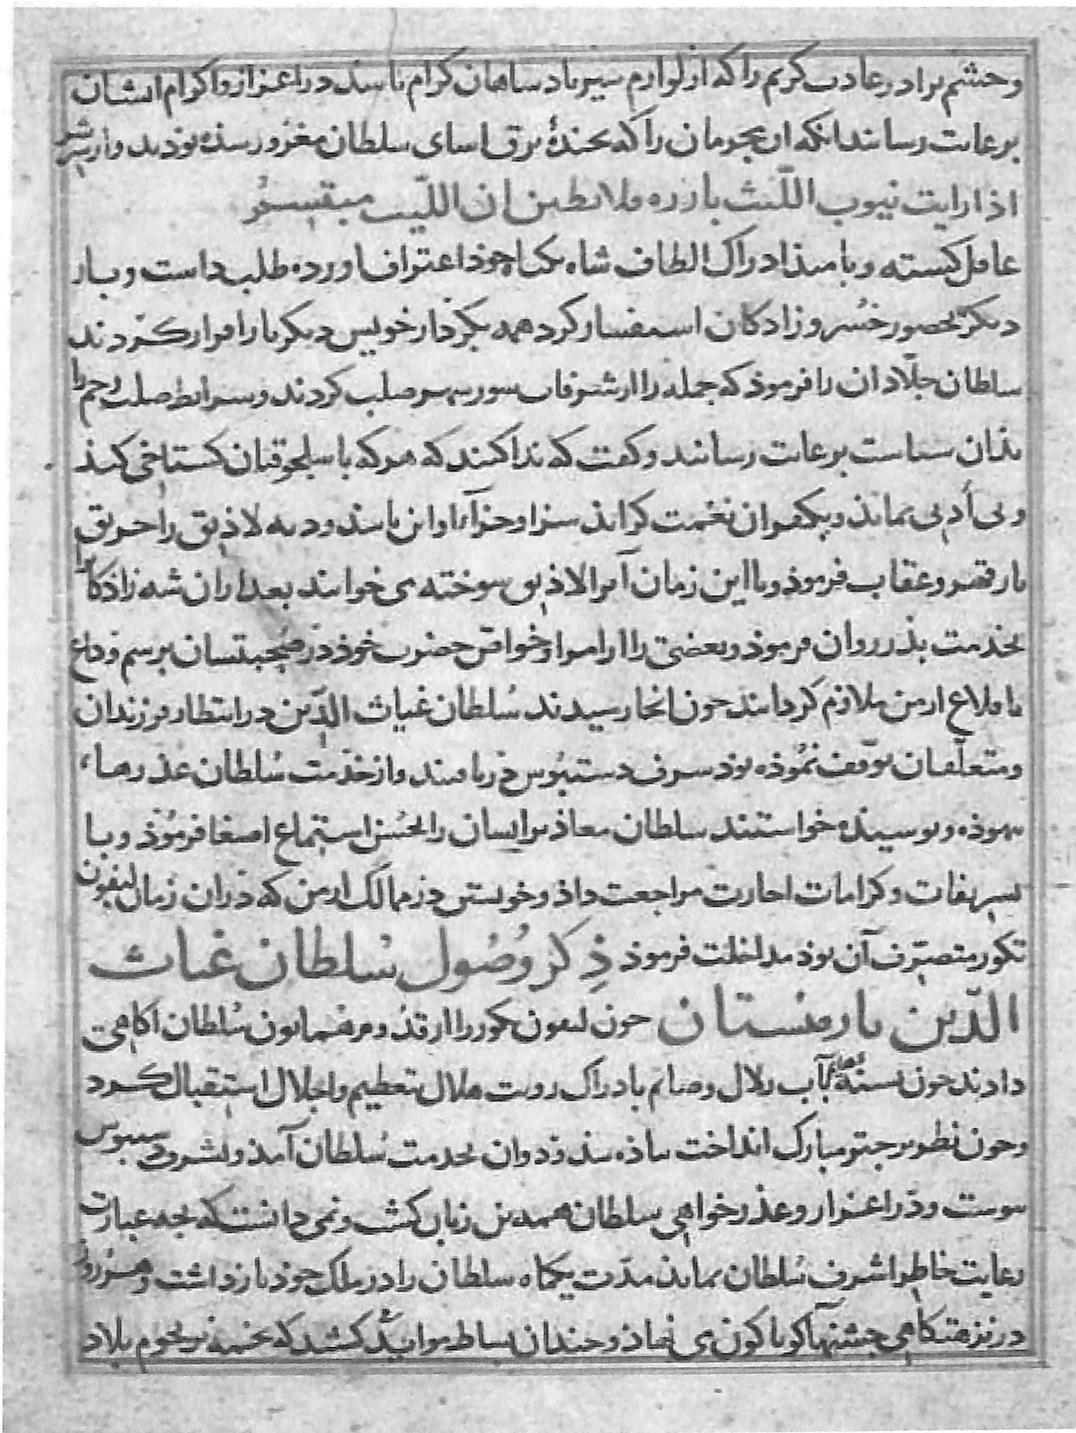 و حشم برادر عادت کریم را که از لوازم سیر پادشاهان کرام باشد در اعزاز و اکرام ایشان
برعایت رسانید انکه ان مجرمان را که بخندهٔ برق اسای سلطان مغرور شده بودند و از سر
اذا رایت نیوب اللیث بارزه فلا تظنن ان اللیث مبتسم
غافل کشته و بامید ادراک الطاف شاه بکناه خود اعتراف اورده طلب داشت و بار
دیکر بحضور خسرو زادکان استفسار کرد همه بکردار خویش دیکر باره اقرار کردند
سلطان جلّادان را فرموذ که جمله را از شرفات سور شهر صلب کردند و شرایط صلت رحم را
بذان سیاست برعایت رسانند و کفت که ندا کنند که هر که با سلجوقیان کستاخی کند
و بی أدبی نماید و بکفران نعمت کراید سزا و جزای او این باشد و دیه لاذیق را حریق
نار قهر و عقاب فرموذ و تا این زمان آنرا لاذیق سوخته می خوانند بعد از ان شه زادکانرا
بخدمت پدر روان فرموذ و بعضی را از امرا و خواص حضرت خوذ در صحبتشان برسم وداع
تا قلاع ارمن ملازم کردانید چون انجا رسیدند سُلطان غیاث الدّین در انتظار فرزندان
و متعلّقان توقّف نموذه بوذ شرف دستبوس دریافتند و از خدمت سُلطان عذرها
نموذه و بوسیده خواستند سلطان معاذیر ایشان را بحُسن استماع اصغا فرموذ و با
تشریفات و کرامات اجازت مراجعت داذ و خویشتن در ممالک ارمن که در ان زمان لیفون
تکور متصرّف آن بوذ مداخلت فرموذ ذِکر وُصُول سُلطان غیاث
الدّین بارمنستان چون لیفون تکور را از قدوم همایون سُلطان اکاهی
دادند چون تشنهٔ بآب زلال و صایم بادراک رویت هلال تعظیم و اجلال استقبال کرد
و چون نظر بر چتر مبارک انداخت پیاذه شد و دوان بخدمت سُلطان آمد و بشرف دستبوس
پیوست و در اعزاز و عذرخواهی سلطان همه تن زبان کشت و نمی دانست که بچه عبارت
رعایت خاطر اشرف سُلطان نماید مدّت یکماه سلطان را در ملک خود باز داشت و هر روز
در نزهتکاهی جشنهآ کوناکون می نهاذ و چندان بساط مواید کشید که بخمنه نجوم بلاد